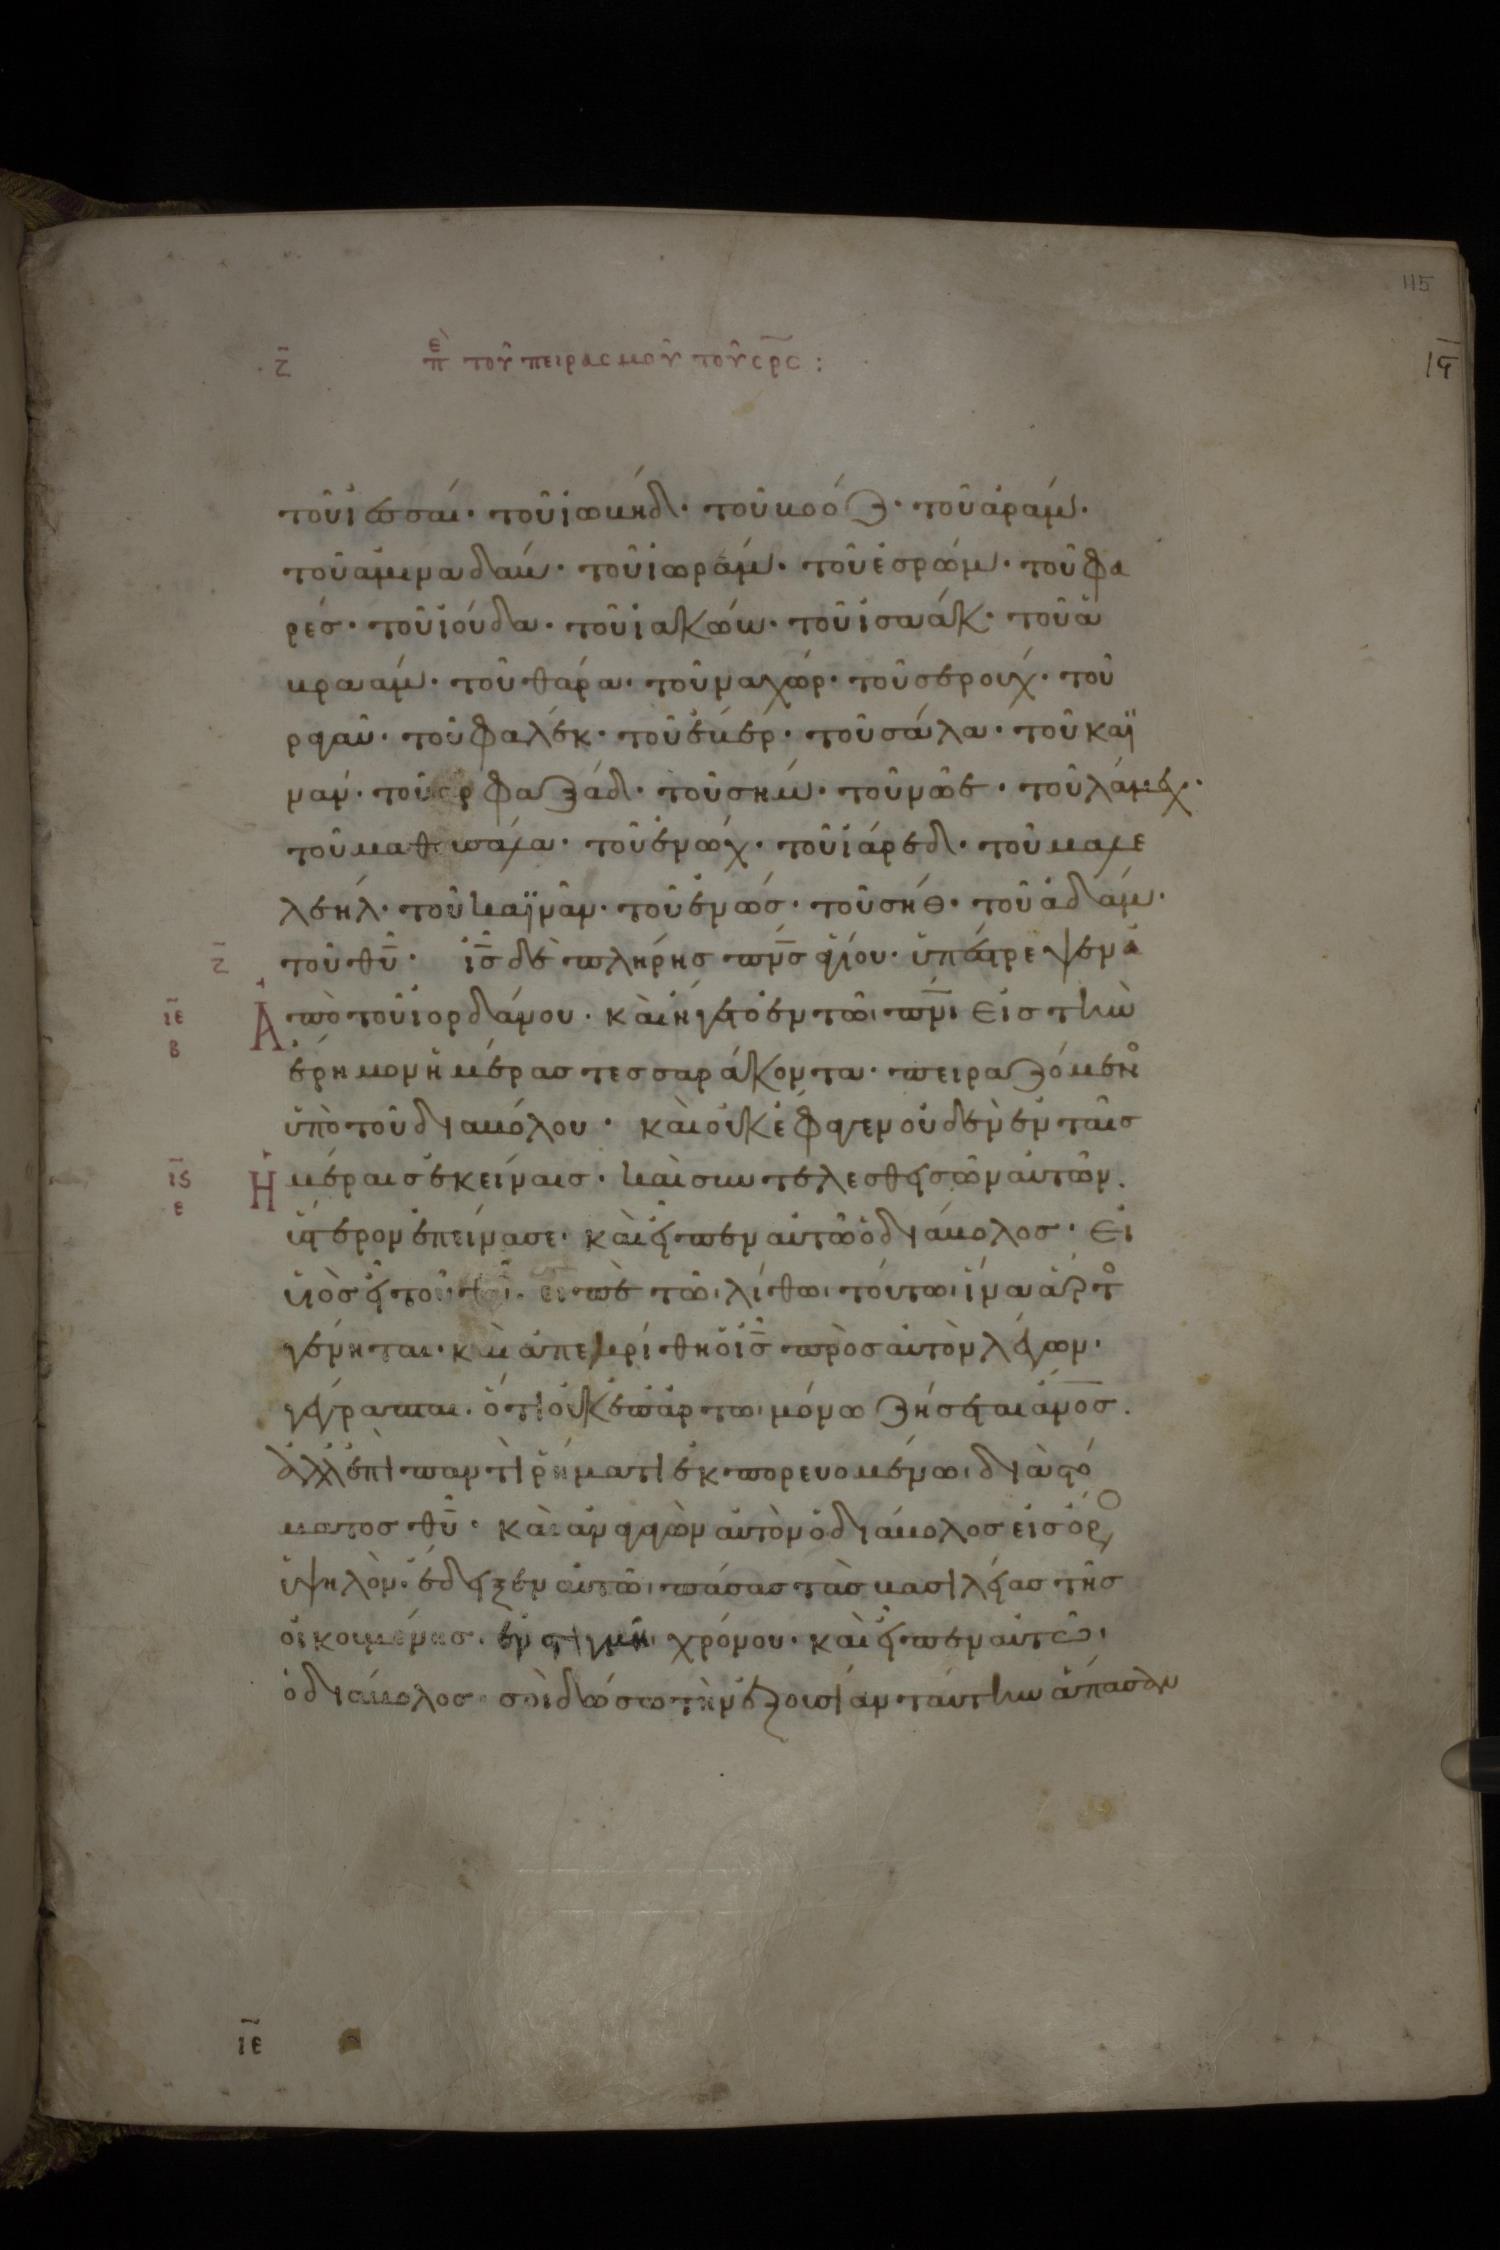 115
ζ̄ ἐπὶ τοῦ πειρασμοῦ τοῦ σρ̅ς :
τοῦ ἰεσσαί · τοῦ ἰωβήδ · τοῦ βοόζ · τοῦ ἀράμ ·
τοῦ ἀμιναδάμ · τοῦ ἰωράμ · τοῦ ἐσρώμ · τοῦ φα
ρές · τοῦ ἰούδα · τοῦ ἰακώβ · τοῦ ἰσαάκ · τοῦ ἀ
βραάμ · τοῦ θάρα · τοῦ ναχώρ · τοῦ σερούχ · τοῦ
ραγαῦ · τοῦ φαλέκ · τοῦ ἐβέρ · τοῦ σάλα · τοῦ καϊ
νάν · τοῦ ἀρφαξάδ · τοῦ σήμ · τοῦ νῶε · τοῦ λάμεχ ·
τοῦ μαθουσάλα · τοῦ ἐνώχ · τοῦ ἰάρεδ · τοῦ μαλε
λεήλ · τοῦ καϊνᾶν · τοῦ ἐνώς · τοῦ σήθ · τοῦ ἀδάμ ·
ζ̄ τοῦ θῦ · ἰς̅ δὲ πλήρης πν̅ς ἁγίου · ὑπέστρεψεν ἀ
ιε̄ β Ἀπὸ τοῦ ἰορδάνου · καὶ ἤγετο ἐν τῶ πν̅ι εἰς τὴν
ἔρημον ἡμέρας τεσσαράκοντα · πειραζόμενο
ὑπὸ τοῦ διαβόλου · καὶ οὐκ ἔφαγεν οὐδὲν ἐν ταῖς
ις̄ ε Ἡμέραις ἐκείναις · καὶ συντελεσθεισῶν αὐτῶν ·
ὕστερον ἐπείνασε · καὶ εἶπεν αὐτῶ ὁ διάβολος · Εἰ
υἱὸς εἶ τοῦ θῦ · εἰπὲ τῶ λίθω τούτω ἵνα ἄρτο
γένηται · καὶ ἀπεκρίθη ὁ ἰς̅ πρὸς αὐτὸν λέγων ·
γέγραπται · ὅτι οὐκ ἐπ' ἄρτω μόνω ζήσεται ἄνος̅ ·
ἀλλ' ἐπὶ παντὶ ῥήματι ἐκπορευομένω διὰ στό
ματος θῦ · καὶ ἀναγαγὼν αὐτὸν ὁ διάβολος εἰς ὄρο
ὑψηλὸν · ἔδειξεν αὐτῶ πάσας τὰς βασιλείας τῆς
οἰκουμένης · ἐν στιγμῆ χρόνου · καὶ εἶπεν αὐτῶ
ὁ διάβολος · σοὶ δώσω τὴν ἐξουσίαν ταύτην ἅπασαν
ιε̄